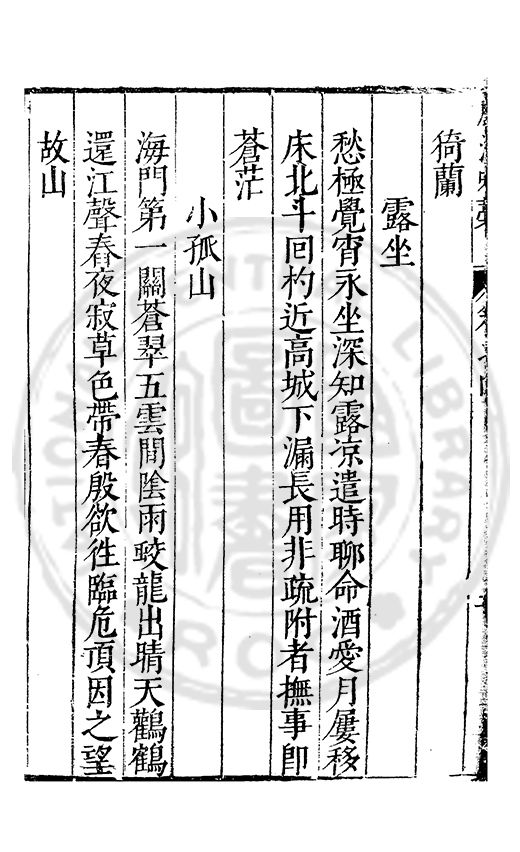 猗蘭
露坐
愁極覺宵永坐深知露涼遣時聊命酒愛月屢移
床北斗回杓近高城下漏長用非疏附者撫事卽
蒼茫
小孤山
海門第一關蒼翠五雲間陰雨蛟龍出晴天鸛鶴
還江聲舂夜寂草色帶春殷欲徃臨危頂因之望
故山